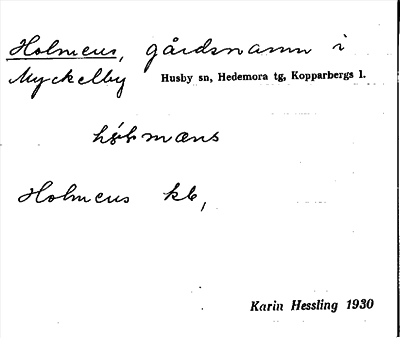 Holmens, gårdsnamn i
Myckelby Husby sn, Hedemora tg, Kopparbergs l.
Holmens kb,
Karin Hessling 1930